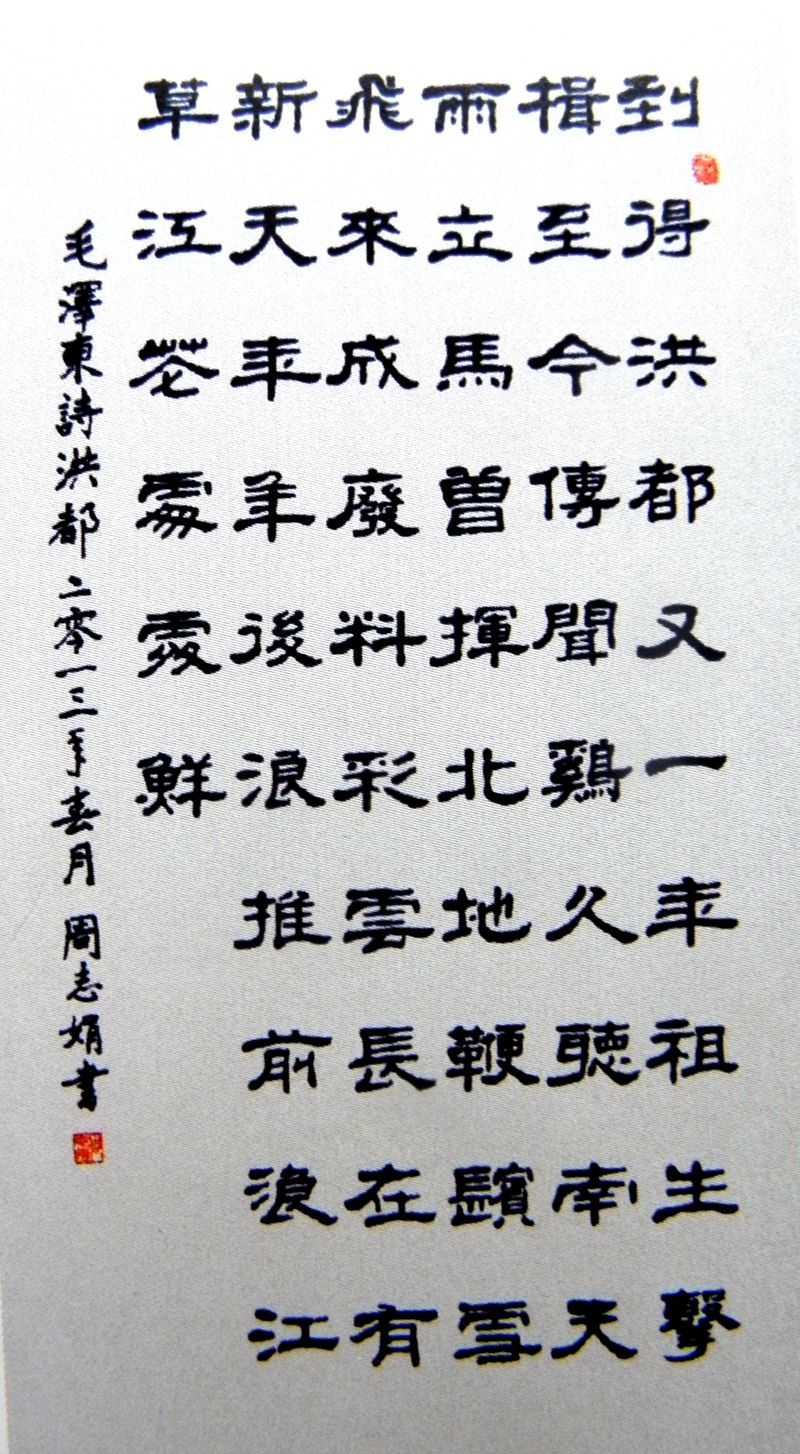 到得洪都又一年祖生擊
揖至今傳聞鷄久聽南天
雨立馬曾揮北地鞭鬢雪
飛來成廢料彩雲長在有
新天年年後浪推前浪江
草江花處處鮮
毛澤東詩洪都 二零一三年春月 周志娟書